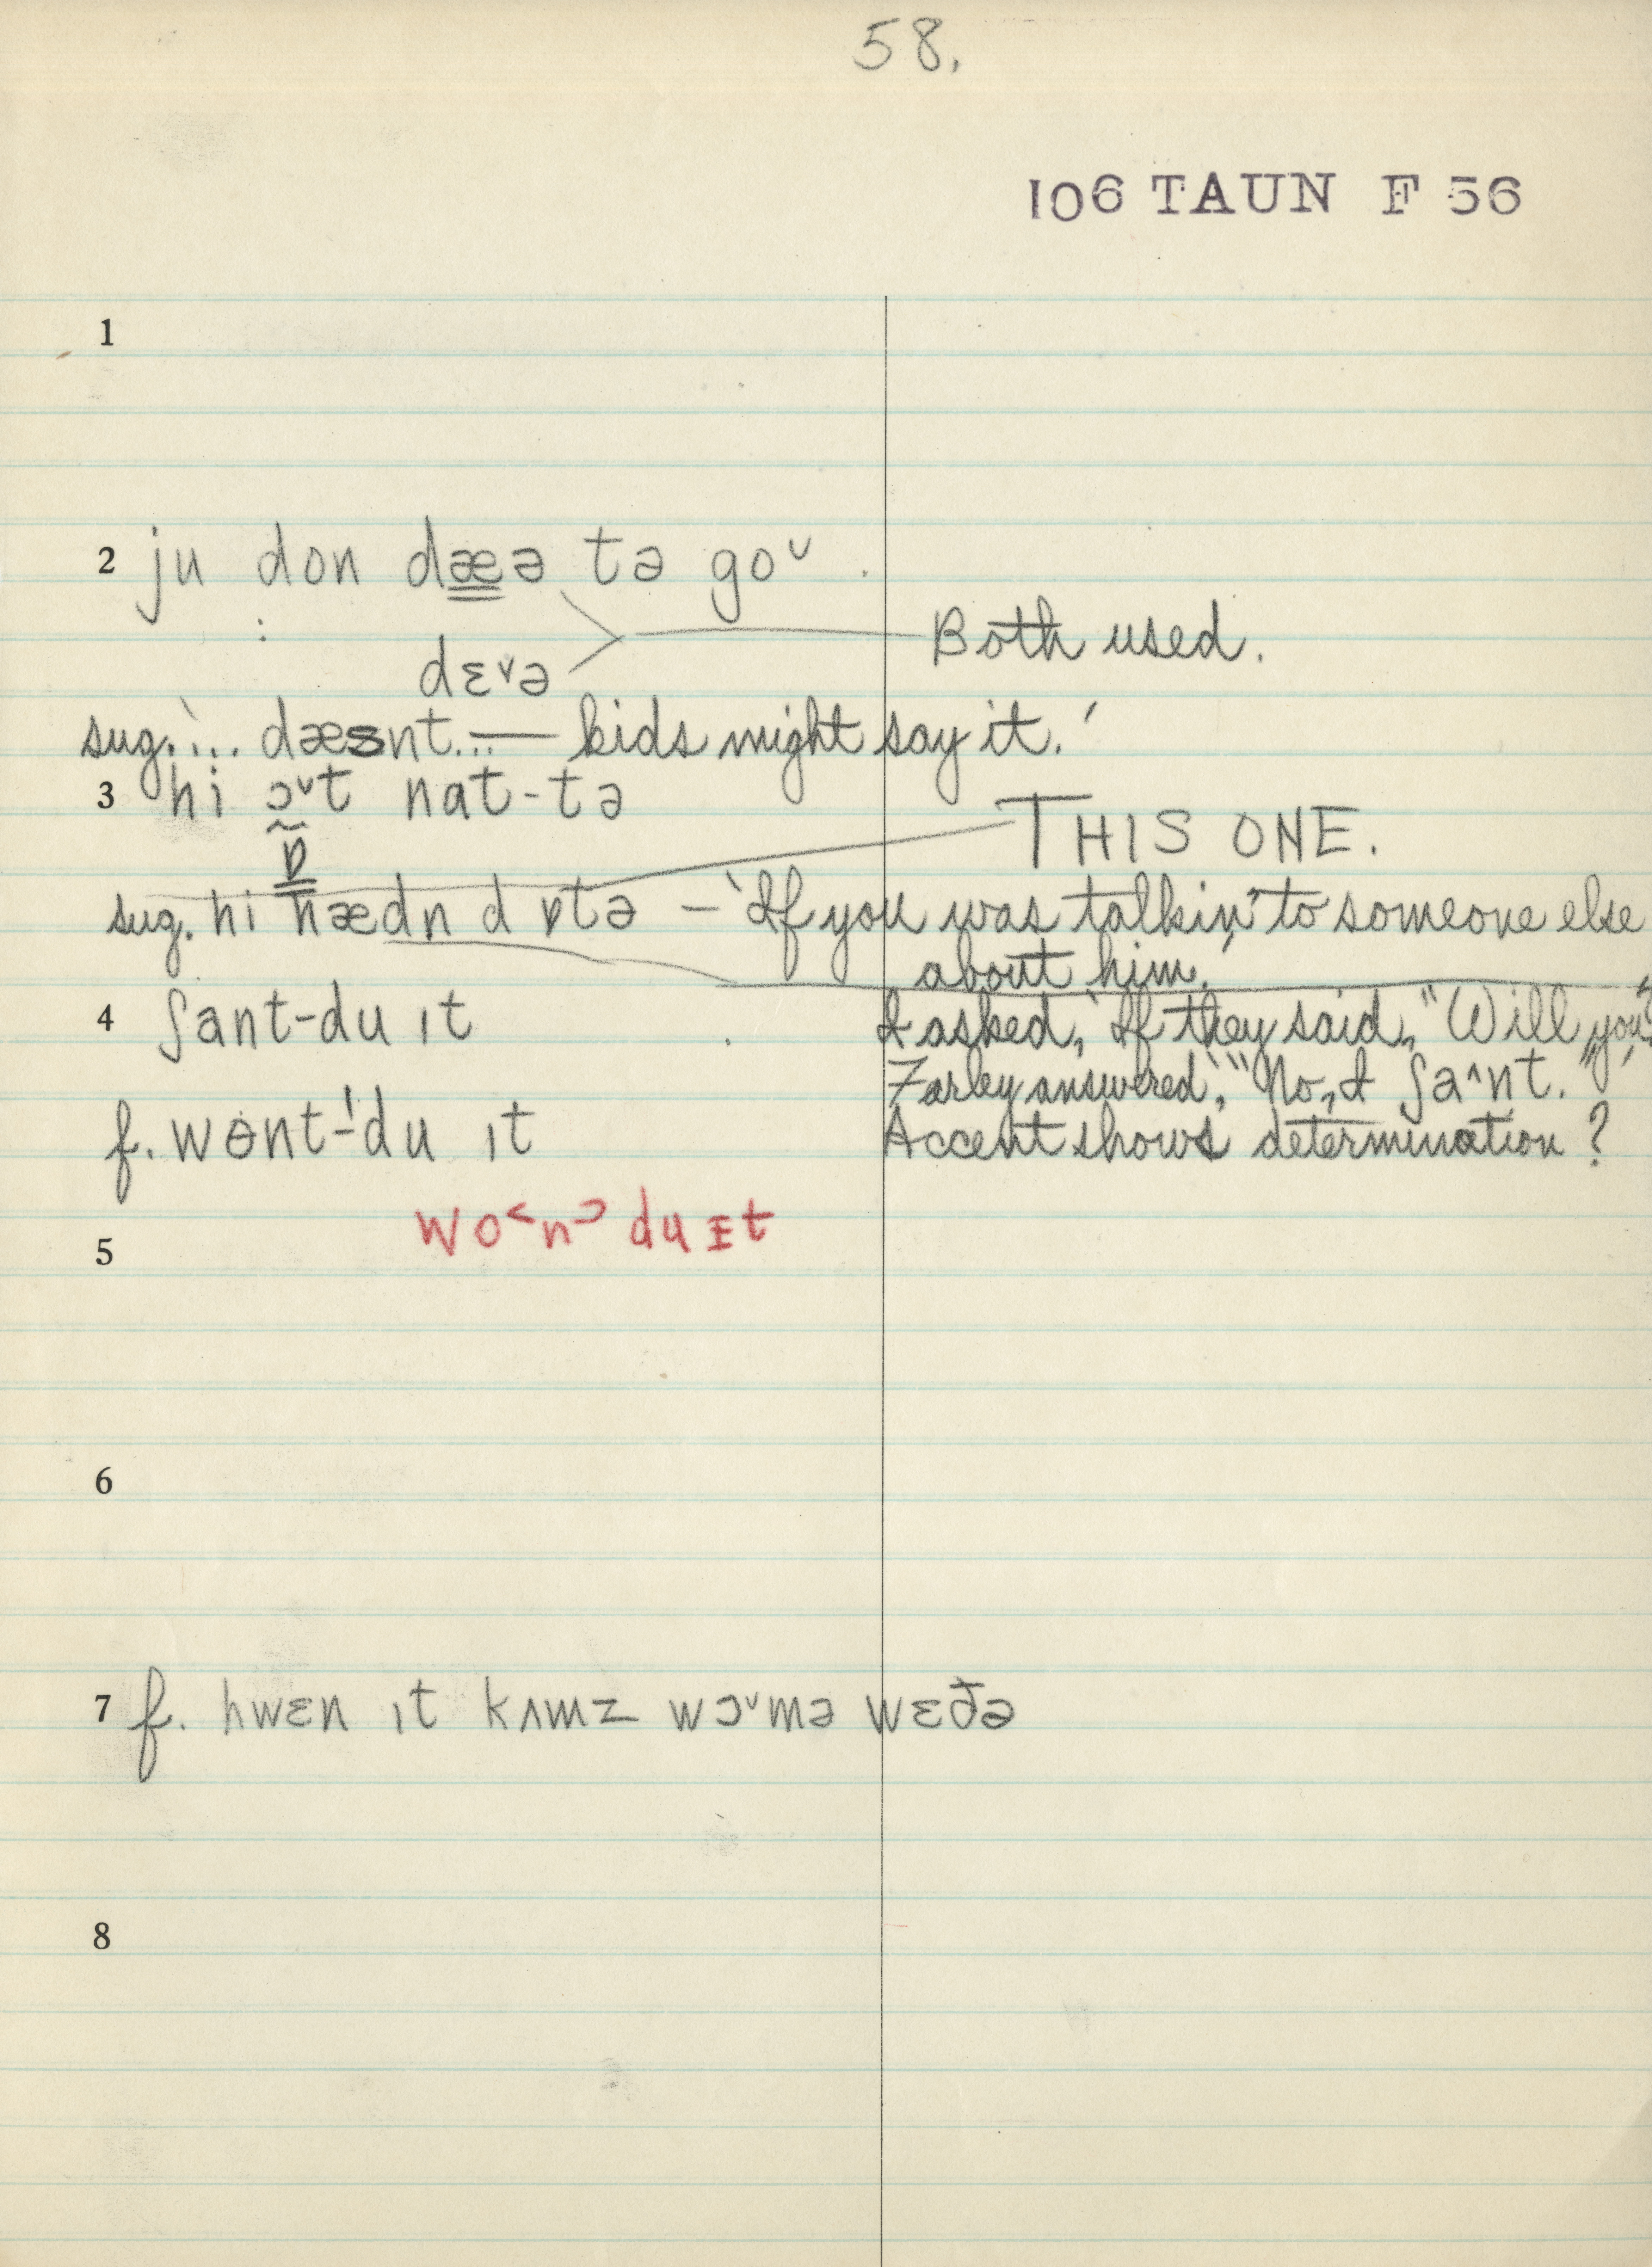 58.
106 TAUN F 56
1
2 ju don dæə tə goᵛ
dɛᵛə Both used.
sug. '... dæsnt... — kids might say it.'
3 hi ɔᵛt nat-tə
ɒ THIS ONE.
sug. hi hædn d ɒtə – 'If you was talkin' to someone else
about him.'
4 ʃant-du ɪt I asked, 'If they said, "Will you"
Farley answered, '"No, I ʃaˆnt."'
f. wɵnt-ˈdu ɪt Accent shows determination?
wo˂n˃ du ɪt
5
6
7 f. hwɛn ɪt kʌmz wɔᵛmə wɛðə
8